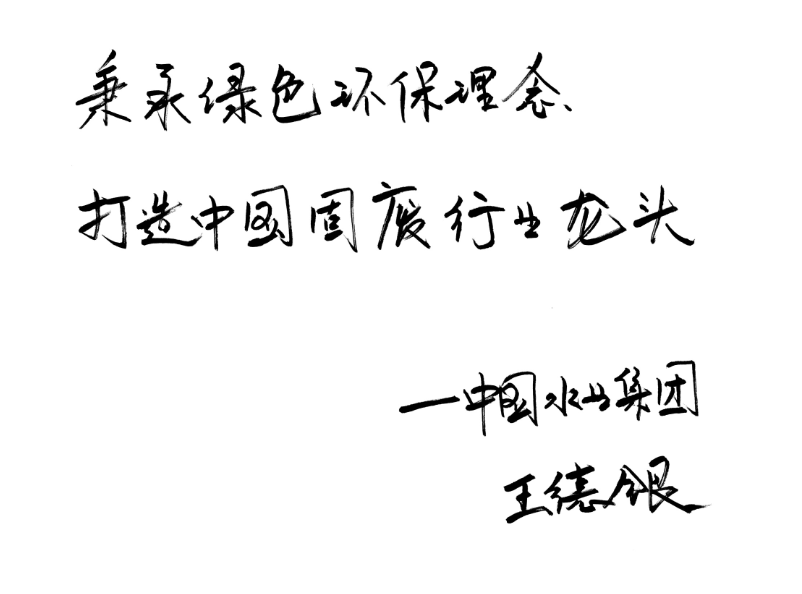 秉承绿色环保理念、
打造中国固废行业龙头
—中国水业集团
王德银